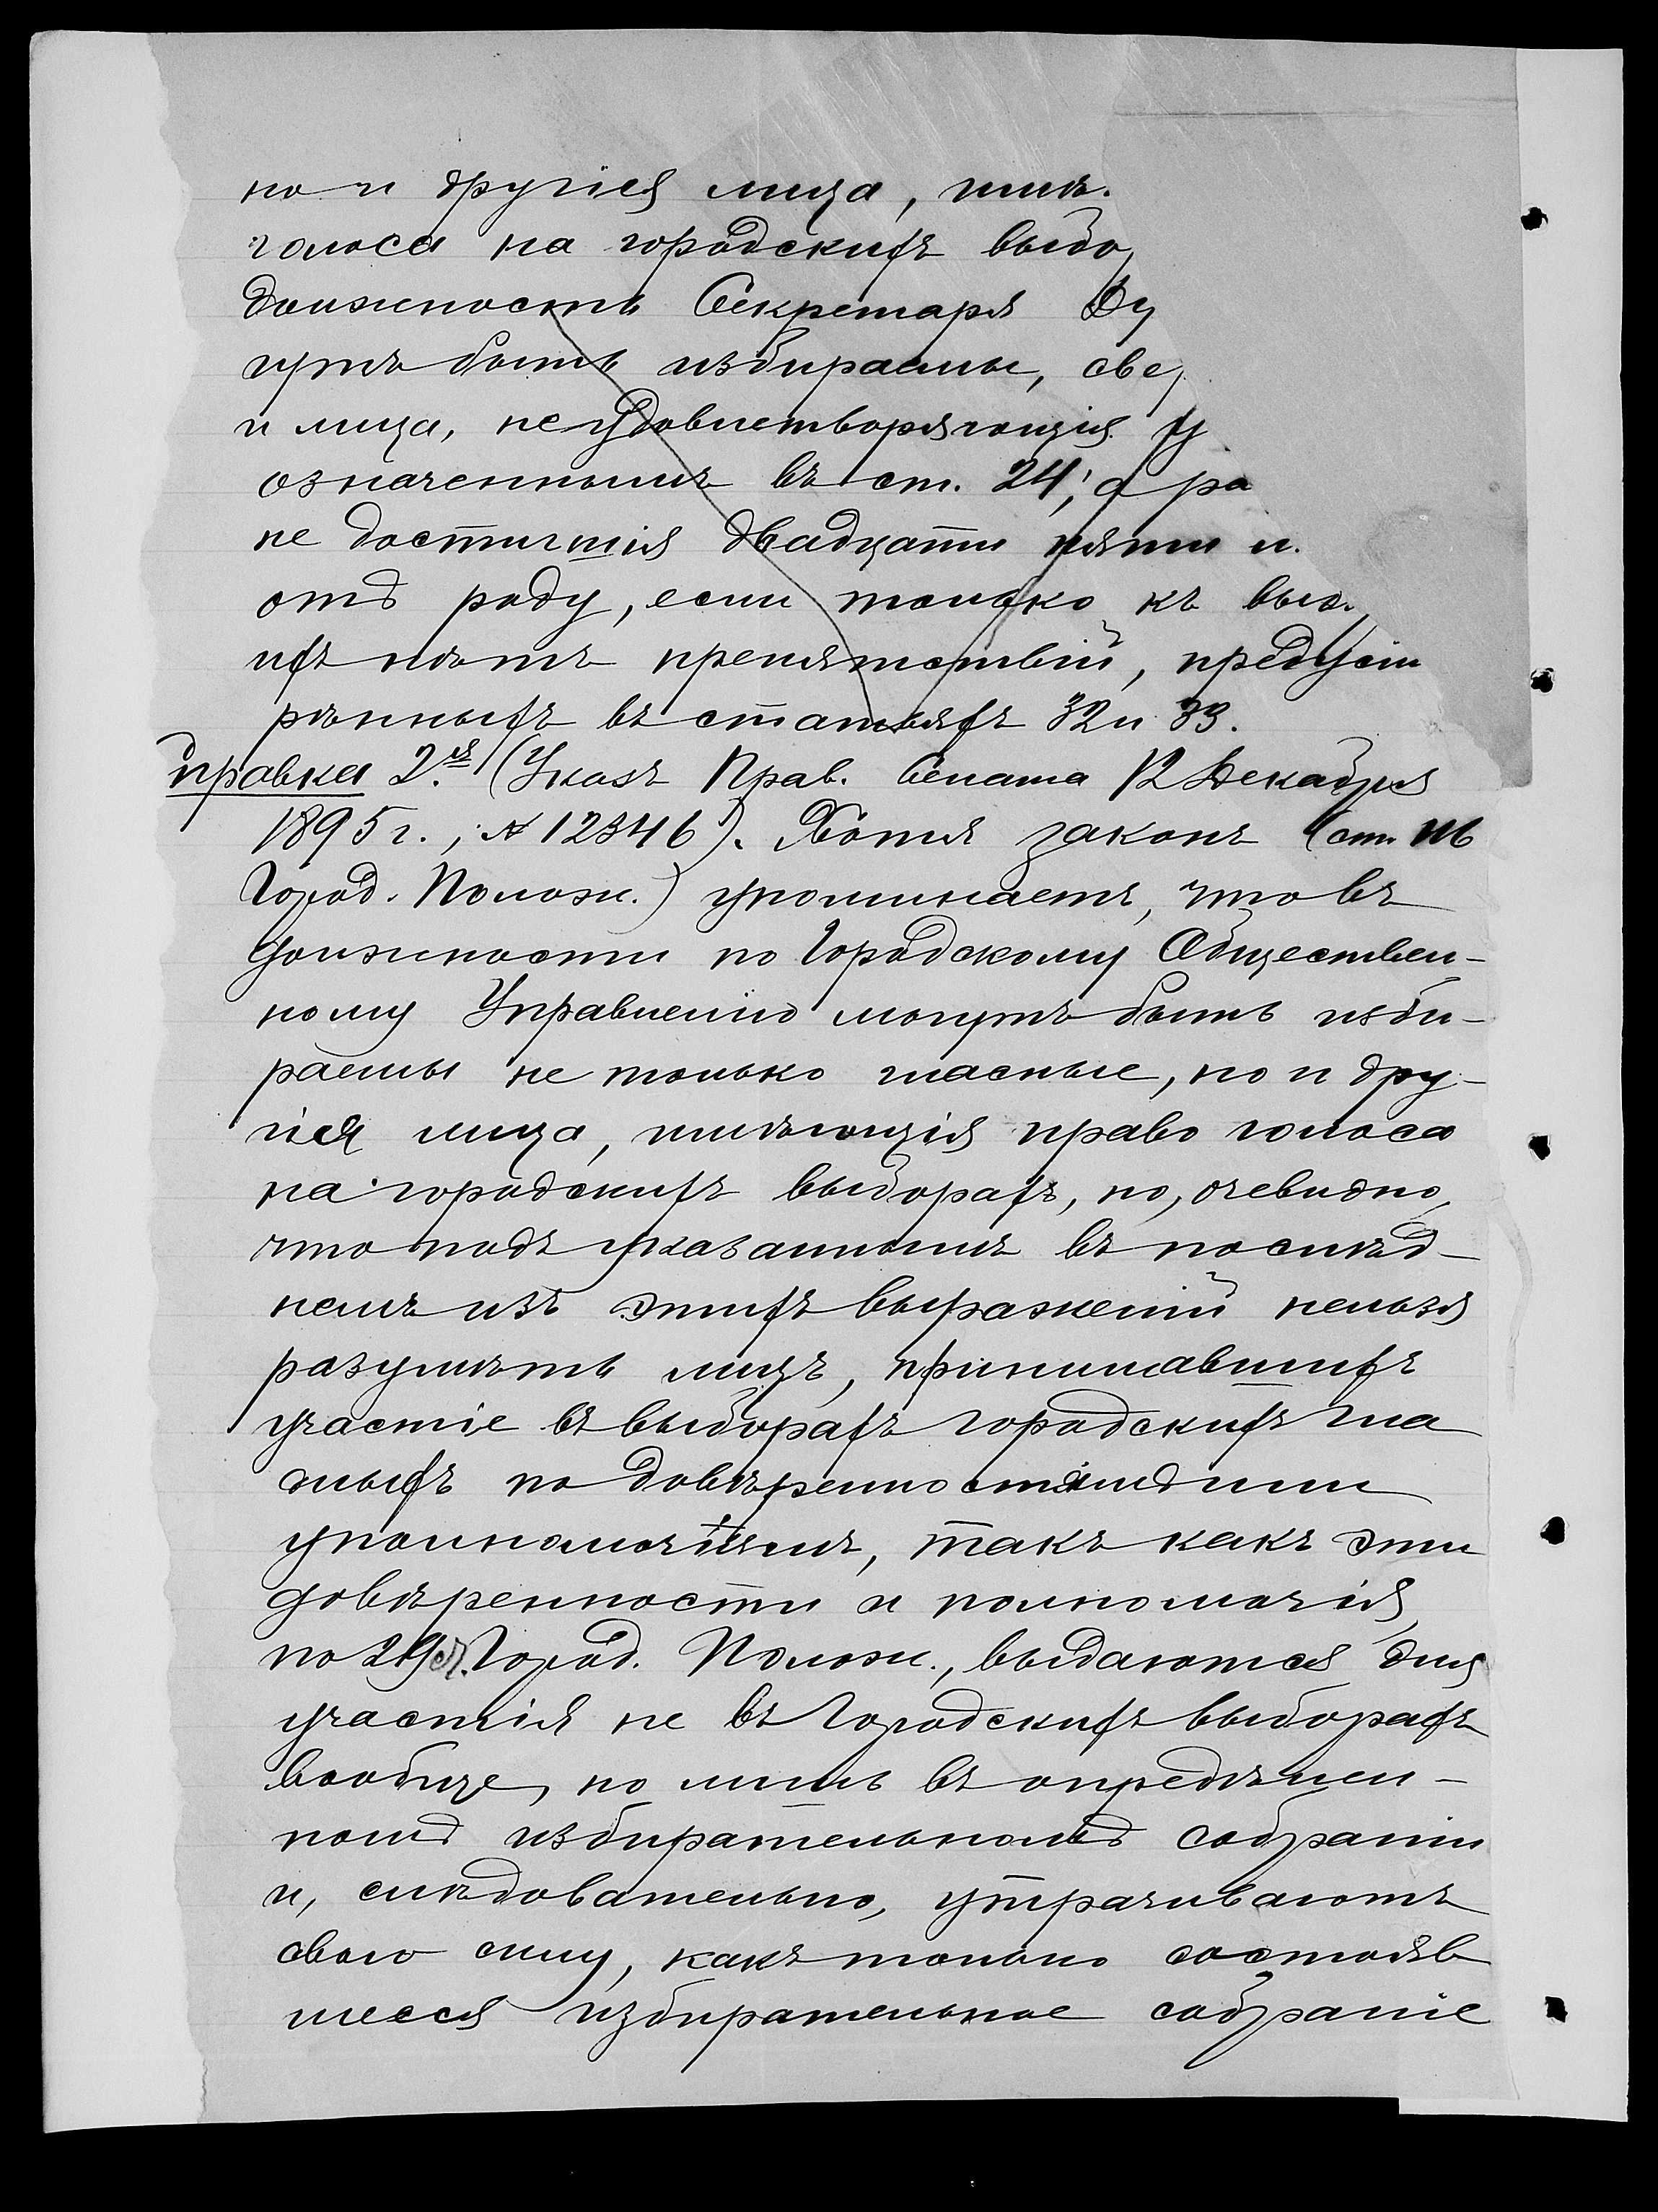 но и другія лица, имѣ
голоса на городскихъ выбо
должность Секретаря Ду
гутъ быть избираемы, све
и лица, неудовлетворяющія у
означеннымъ въ ст. 24, а ра
не достигшія двадцати пяти л
отъ роду, если только къ выб
ихъ нѣтъ препятствій, предусм
рѣнныхъ въ статьяхъ 32 и 33.
правка 2.ая (Указъ Прав. Сената 12 Декабря
1895 г., № 12346). Хотя законъ (ст. 116
Город. Полож.) упоминаетъ, что въ
должности по Городскому Обществен-
ному Управленію могутъ быть изби-
раемы не только гласные, но и дру-
гія лица, имѣющія право голоса
на городскихъ выборахъ, но, очевидно,
что подъ указаннымъ въ послѣд-
немъ изъ этихъ выраженій нельзя
разумѣть лицъ, принимавшихъ
участіе въ выборахъ городскихъ гла
сныхъ по довѣренностямъ или
уполномочіямъ, такъ какъ эти
довѣренности и полномочія,
по 24 ст. Город. Полож., выдаются для
участія не въ Городскихъ выборахъ
вообще, но лишь въ опредѣлен-
номъ избирательномъ собраніи
и, слѣдовательно, утрачиваютъ
свою силу, какъ только состояв
шееся избирательное собраніе